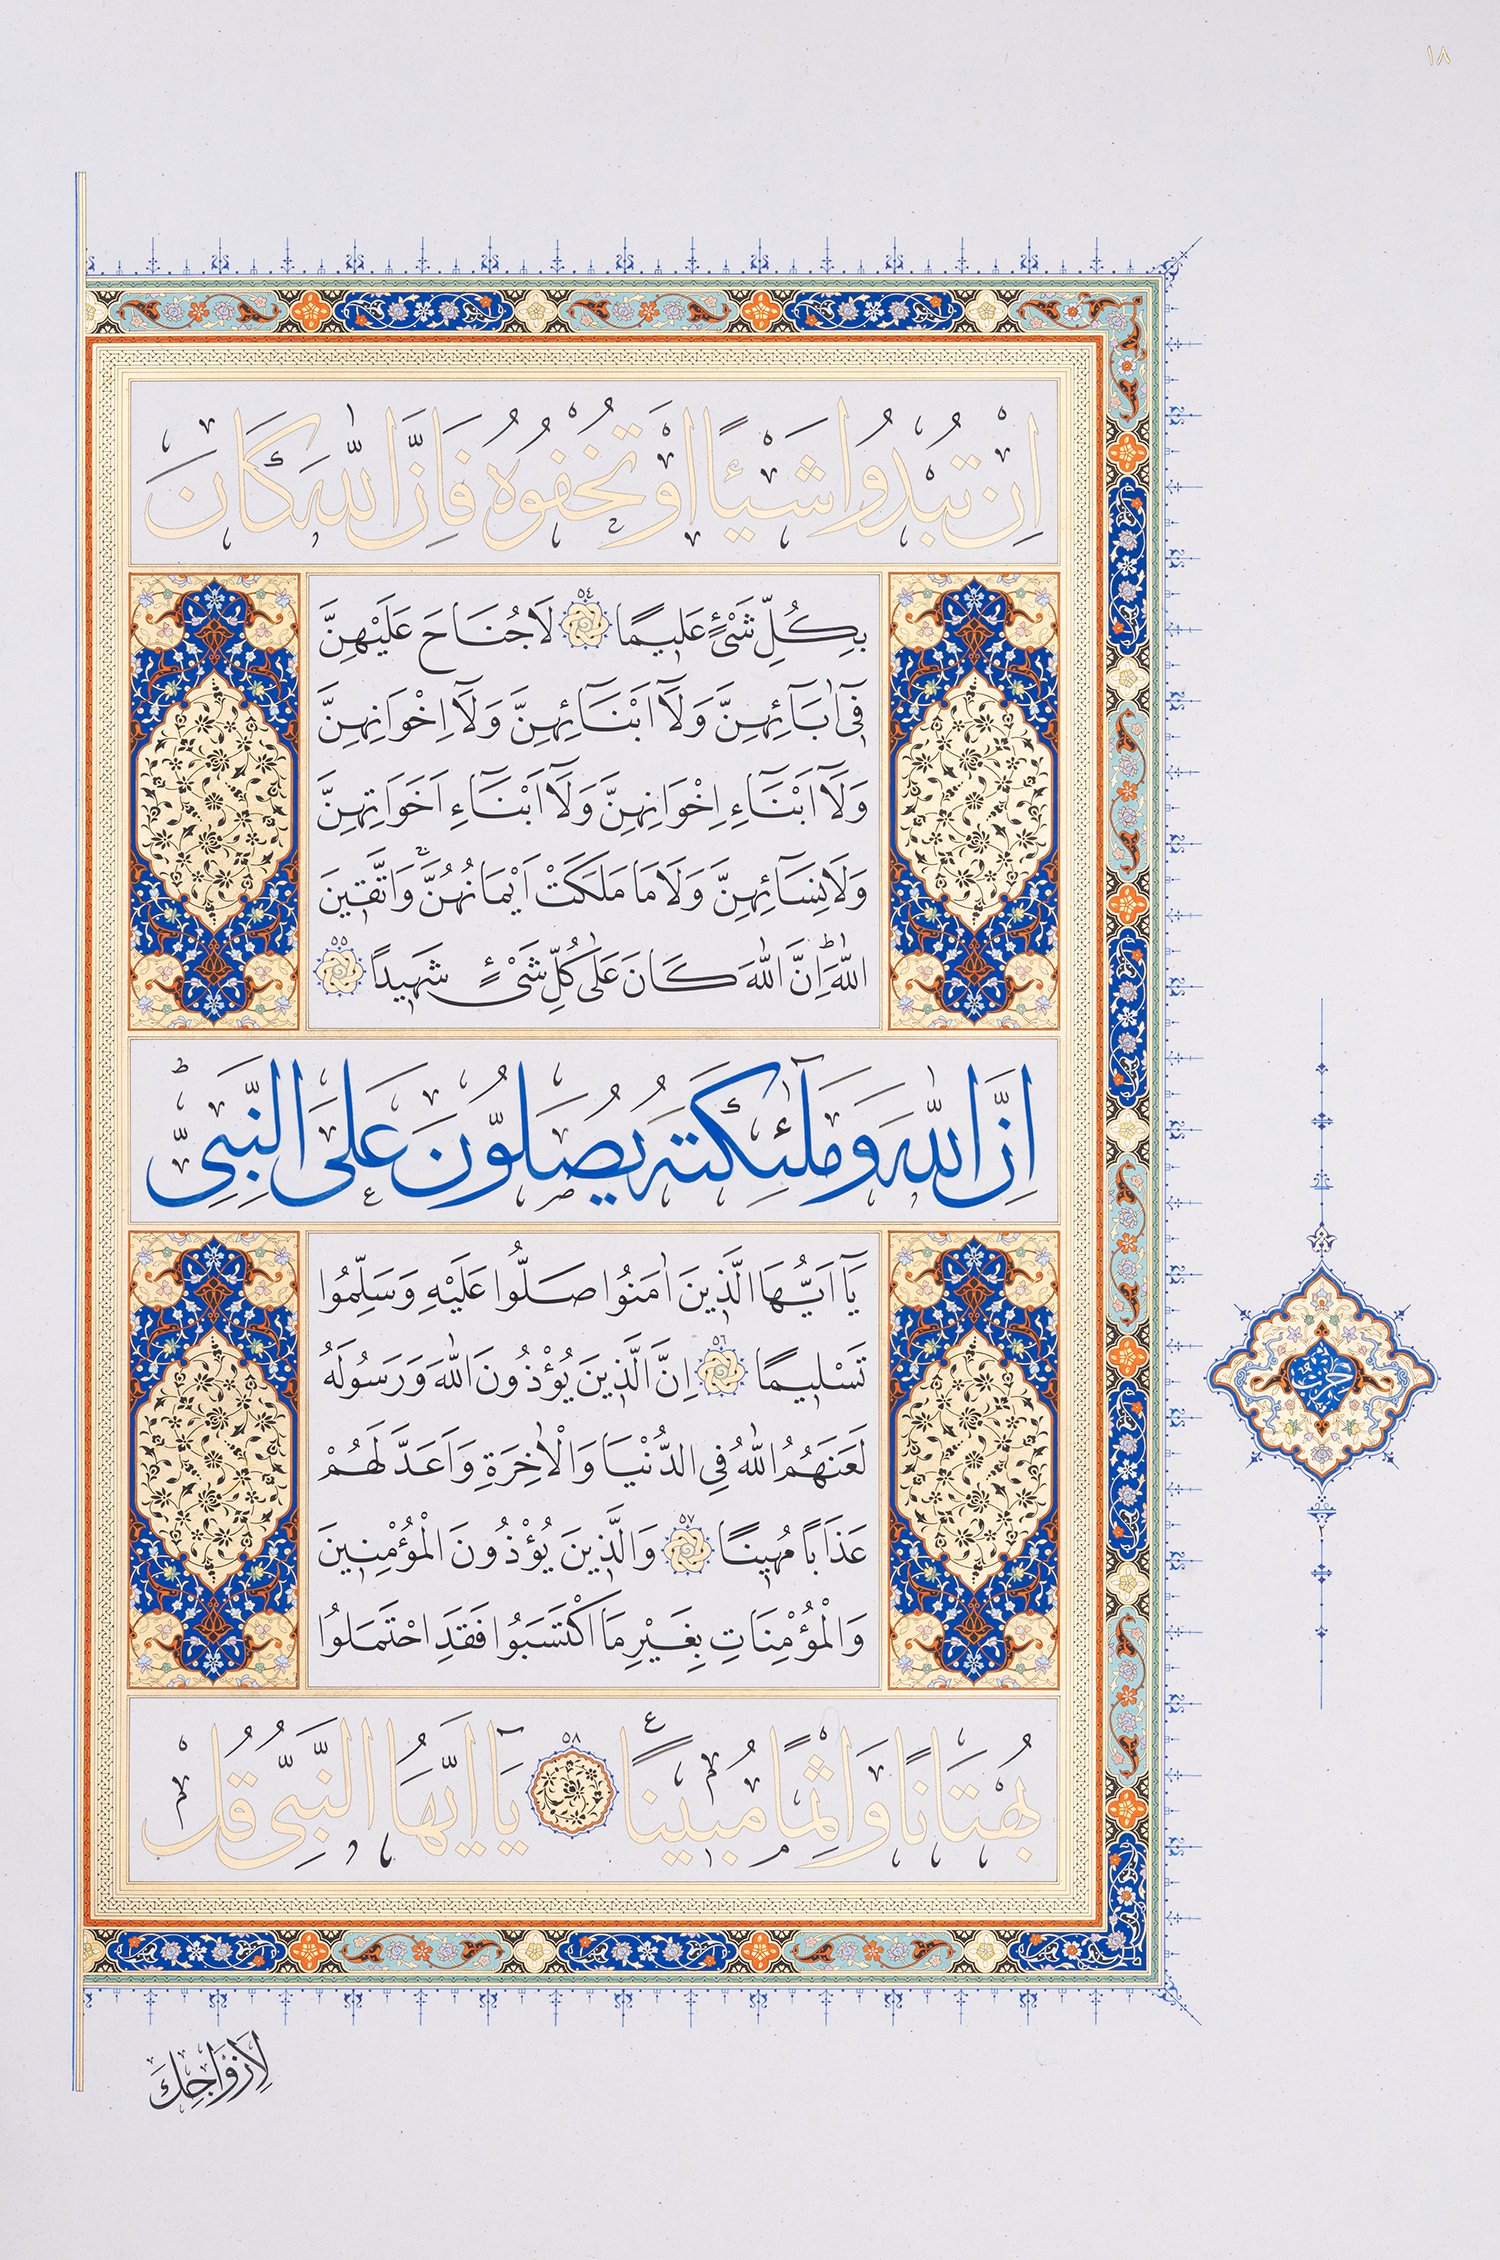 ١٨
اِنْ تُبْدُوا شَيْـًٔا اَوْ تُخْفُوهُ فَاِنَّ اللّٰهَ كَانَ
بِكُلِّ شَیْءٍ عَلٖيمًا ٥٤ لَا جُنَاحَ عَلَيْهِنَّ
فٖٓى اٰبَٓائِهِنَّ وَلَٓا اَبْنَٓائِهِنَّ وَلَٓا اِخْوَانِهِنَّ
وَلَٓا اَبْنَٓاءِ اِخْوَانِهِنَّ وَلَٓا اَبْنَٓاءِ اَخَوَاتِهِنَّ
وَلَا نِسَٓائِهِنَّ وَلَا مَا مَلَكَتْ اَيْمَانُهُنَّۚ وَاتَّقٖينَ
اللّٰهَؕ اِنَّ اللّٰهَ كَانَ عَلٰى كُلِّ شَیْءٍ شَهٖيدًا ٥٥
اِنَّ اللّٰهَ وَمَلٰٓئِكَتَهُ يُصَلُّونَ عَلَى النَّبِىِّؕ
يَٓا اَيُّهَا الَّذٖينَ اٰمَنُوا صَلُّوا عَلَيْهِ وَسَلِّمُوا
تَسْلٖيمًا ٥٦ اِنَّ الَّذٖينَ يُؤْذُونَ اللّٰهَ وَرَسُولَهُ
لَعَنَهُمُ اللّٰهُ فِى الدُّنْيَا وَالْاٰخِرَةِ وَاَعَدَّ لَهُمْ
عَذَابًا مُهٖينًا ٥٧ وَالَّذٖينَ يُؤْذُونَ الْمُؤْمِنٖينَ
وَالْمُؤْمِنَاتِ بِغَيْرِ مَا اكْتَسَبُوا فَقَدِ احْتَمَلُوا
بُهْتَانًا وَاِثْمًا مُبٖينًا ٥٨ يَٓا اَيُّهَا النَّبِىُّ قُلْ
لِاَزْوَاجِكَ
حزب